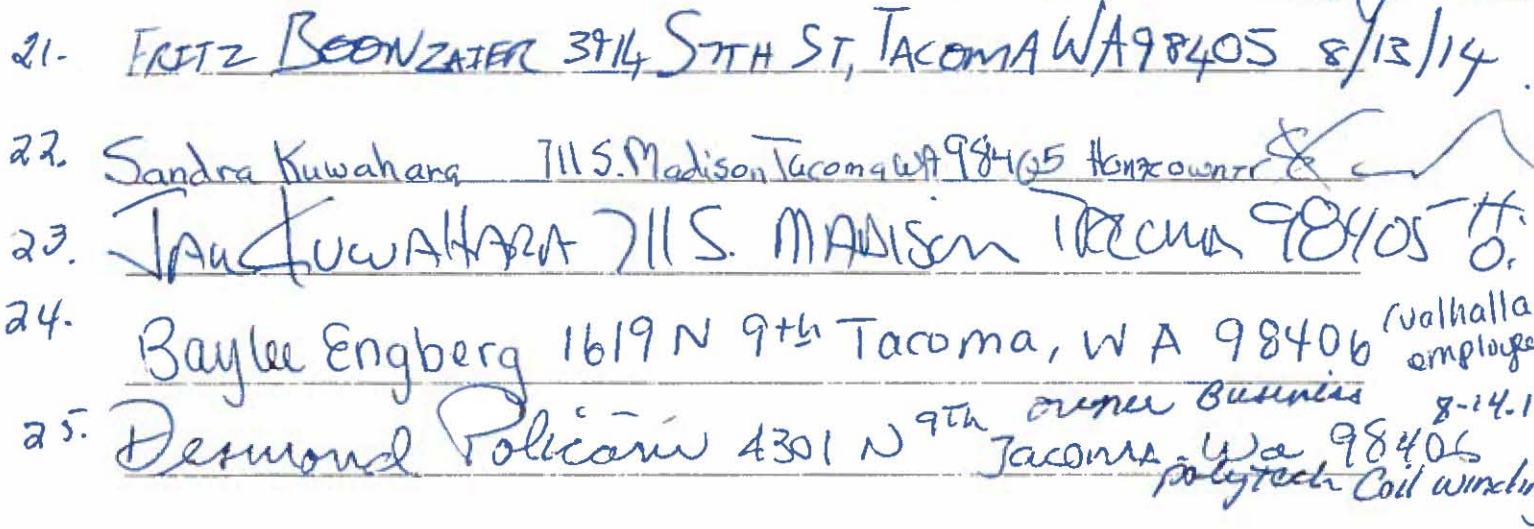 21. FRITZ BOONZAIER 3914 S 7TH ST, TACOMA WA 98405 8/13/14
22. Sandra Kuwahara 711 S. Madison Tacoma WA 98405 Homeowner
23. KUWAHARA 711 S. MADISON 98405 H.O.
24. Baylee Engberg 1619 N 9th Tacoma, WA 98406 (Valhalla employee
25. Desmond 4301 N 9th Tacoma Wa 98406 owner Business 8-14.1
polytech Coil windin